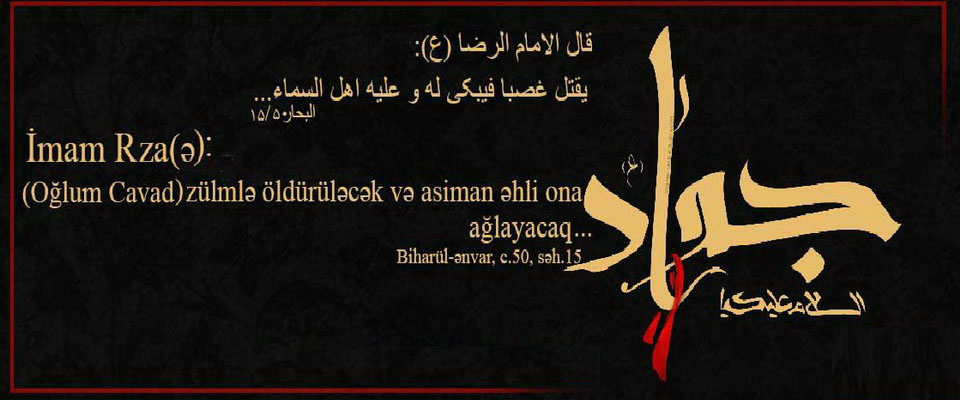 قال الامام الرضا (ع):
يقتل غصبا فيبكى له و عليه اهل السماء...
البحار۵۰/۱۵
İmam Rza(ə):
(Oğlum Cavad)zülmlə öldürüləcək və asiman əhli ona
ağlayacaq...
Biharül-ənvar, c.50, səh.15
جواد
(ع)
السلام علیک یا